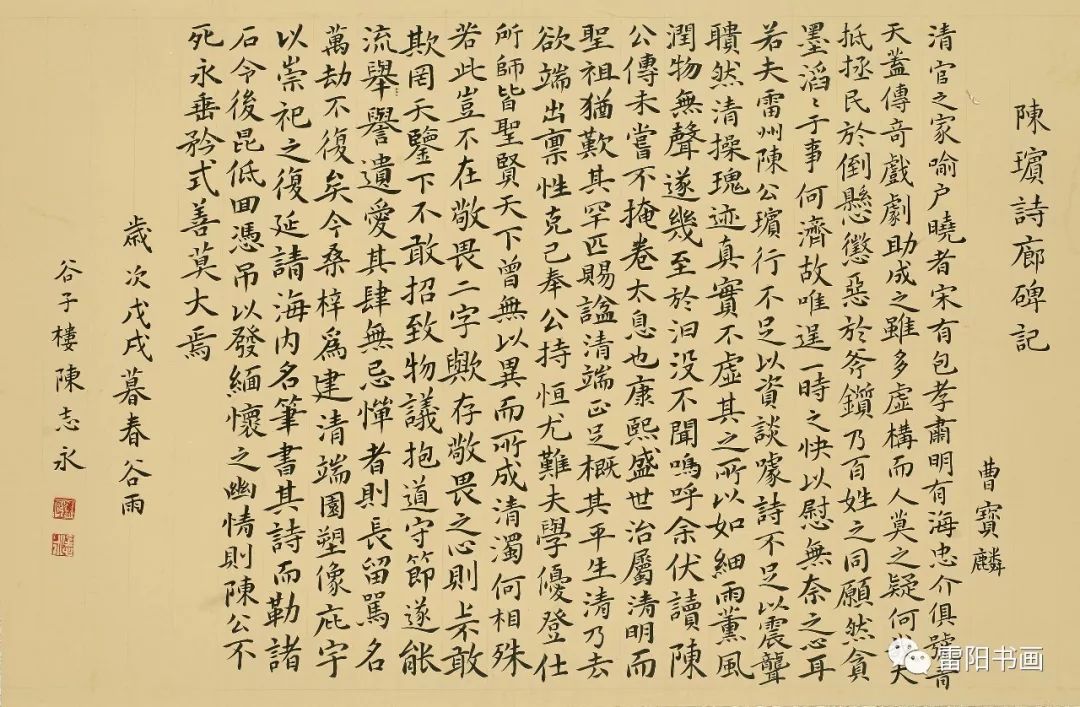 陳璸詩廊碑記
曹寶麟
清官之家喻户曉者宋有包孝肅明有海忠介俱號青
天蓋傳奇戲劇助成之雖多虛構而人莫之疑何
抵拯民於倒懸懲惡於斧鑕乃百姓之同願然貪
墨滔〻于事何濟故唯逞一時之快以慰無奈之心耳
若夫雷州陳公璸行不足以資談噱詩不足以震聾
聵然清操瑰迹真實不虛其之所以如細雨薰風
潤物無聲遂幾至於汩没不聞嗚呼余伏讀陳
公傳未嘗不掩卷太息也康熙盛世治屬清明而
聖祖猶歎其罕匹賜諡清端正足概其平生清乃去
欲端出禀性克己奉公持恒尤難夫學優登仕
所師皆聖賢天下曾無以異而所成清濁何相殊
若此豈不在敬畏二字歟存敬畏之心則上不敢
欺罔天鑒下不敢招致物議抱道守節遂能
流舉譽遺愛其肆無忌憚者則長留罵名
萬劫不復矣今桑梓爲建清端園塑像庇宇
以崇祀之復延請海内名筆書其詩而勒諸
石令後昆低回憑吊以發緬懷之幽情則陳公不
死永垂矜式善莫大焉
歲次戊戌暮春谷雨
谷子樓陳志永
雷阳书画